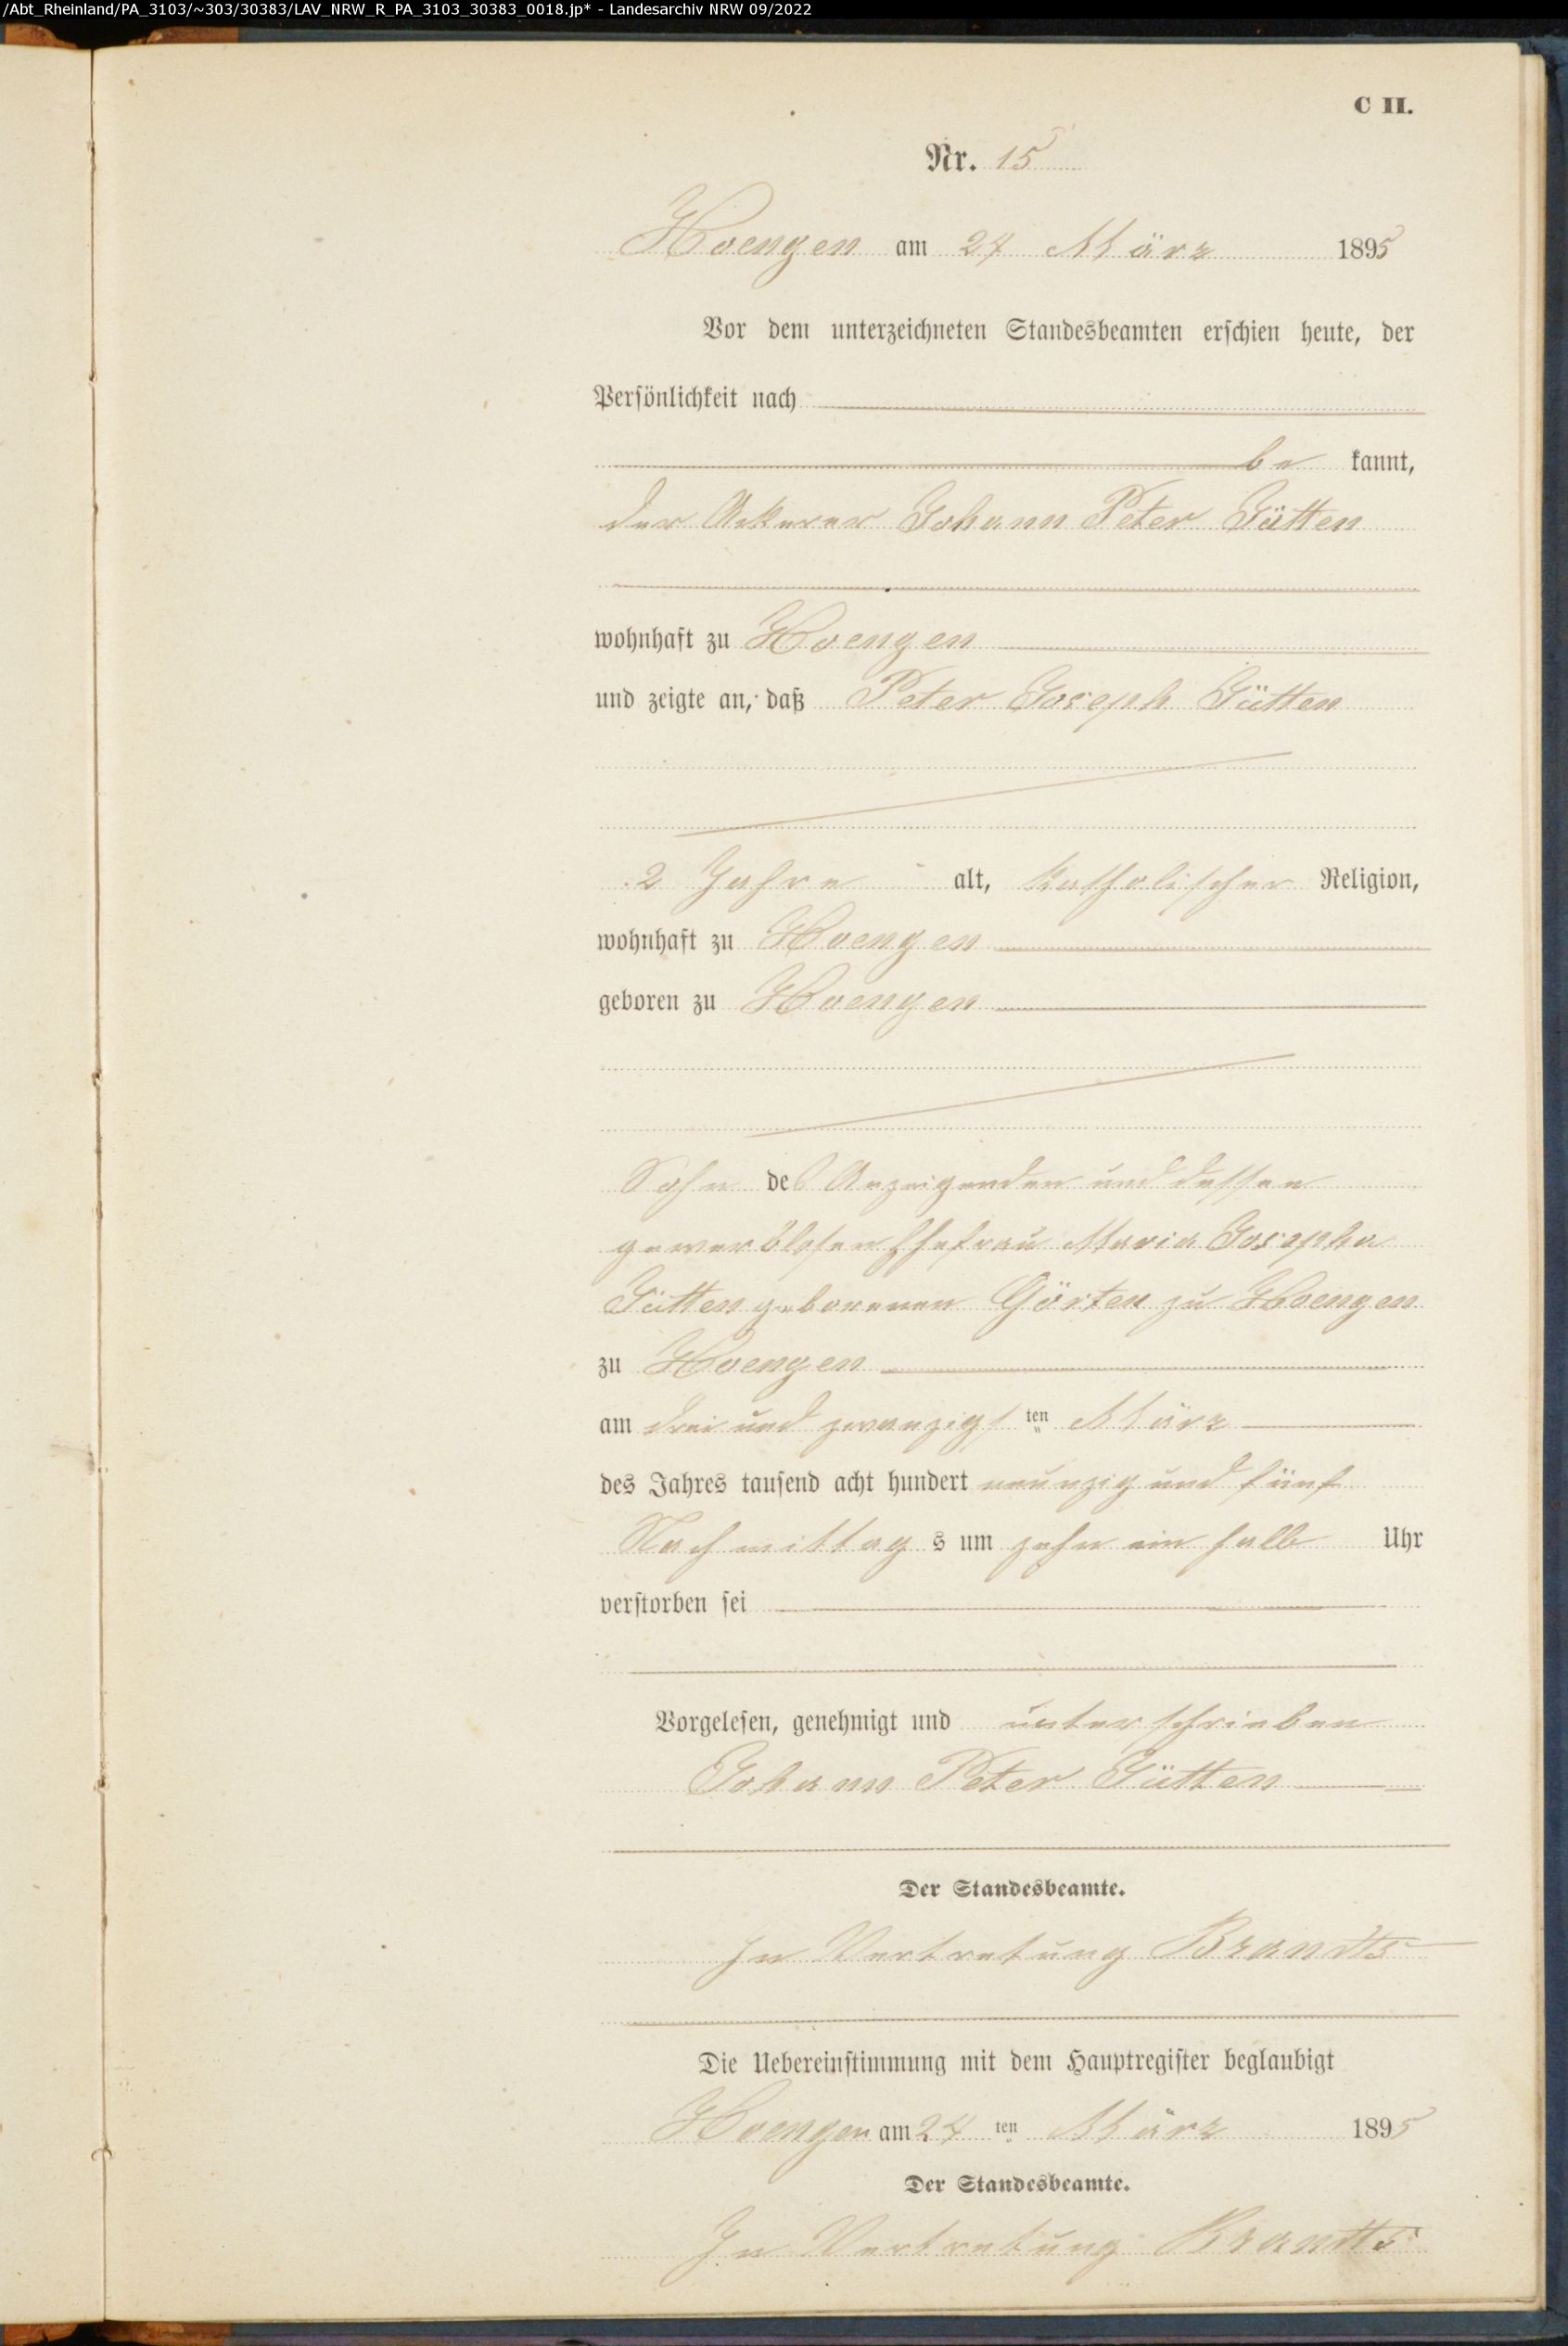 /Abt_Rheinland/PA_3103/~303/30383/LAV_NRW_R_PA_3103_30383_0018.jp* - Landesarchiv NRW 09/2022
C II.
Nr. 15
Hoengen am 24 März 1895
Vor dem unterzeichneten Standesbeamten erschien heute, der
Persönlichkeit nach
be kannt,
der Ackerer Johann Peter Jütten
wohnhaft zu Hoengen
und zeigte an, daß Peter Joseph Jütten
2 Jahre alt, katholischer Religion,
wohnhaft zu Hoengen
geboren zu Hoengen
Sohn des Anzeigenden und dessen
gewerblosen Ehefrau Maria Josepha
Jütten geborenen Görten zu Hoengen
zu Hoengen
am drei und zwanzigsten März
des Jahres tausend acht hundert neunzig und fünf
Nachmittags um zehn ein halb Uhr
verstorben sei
Vorgelesen, genehmigt und unterschrieben
Johann Peter Jütten
Der Standesbeamte.
In Vertretung Brandts
Die Uebereinstimmung mit dem Hauptregister beglaubigt
Hoengen am 24ten März 1895
Der Standesbeamte.
In Vertretung Brandts